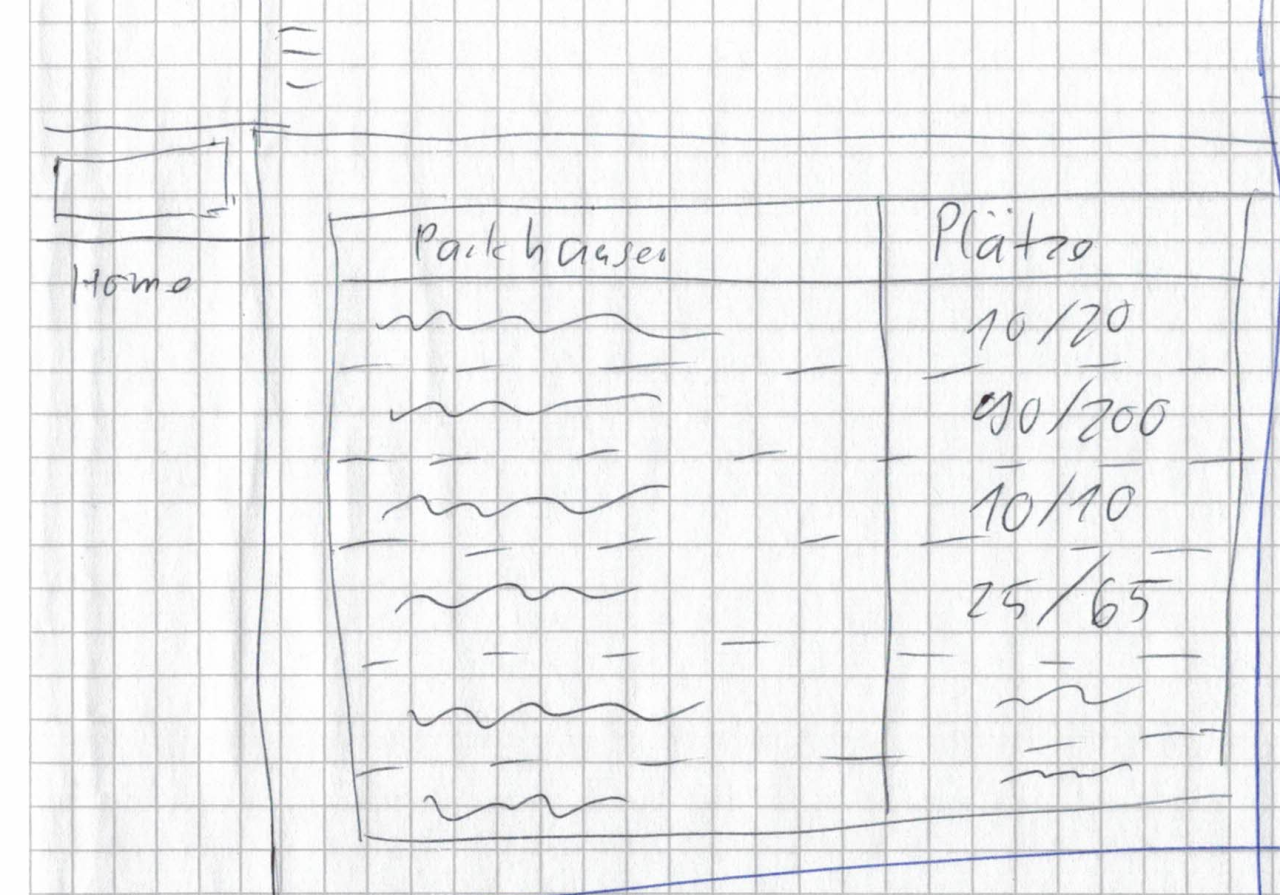 Home
Parkhäuser
Plätze
10/20
90/200
10/10
25/65